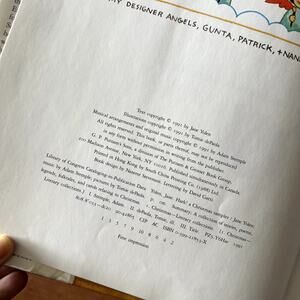 MY DESIGNER ANGELS, GUNTA, PATRICK, + NAN
Text copyright © 1991 by Jane Yolen
Illustrations copyright © 1991 by Tomie dePaola
Musical arrangements and original music copyright © 1991 by Adam Stemple
All rights reserved. This book, or parts thereof, may not be reproduced
in any form without permission in writing from the publisher.
G. P. Putnam's Sons, a division of The Putnam & Grosset Book Group,
200 Madison Avenue, New York, NY 10016. Published simultaneously in Canada
Printed in Hong Kong by South China Printing Co. (1988) Ltd.
Book design by Nanette Stevenson, Lettering by David Gatti
Library of Congress Cataloging-in-Publication Data
Yolen, Jane. Hark! a Christmas sampler / Jane Yolen;
music by Adam Stemple; pictures by Tomie dePaola. p. cm. Summary: A collection of stories, poems,
legends, folklore, and carols relating to Christmas. 1. Christmas—Literary collections. [1. Christmas—
Literary collections.] I. Stemple, Adam. II. dePaola, Tomie, ill. III. Title. PZ5.Y8Har 1991
808.8'033—dc20 90-42865 CIP AC ISBN 0-399-21853-X
1 3 5 7 9 10 8 6 4 2
First impression